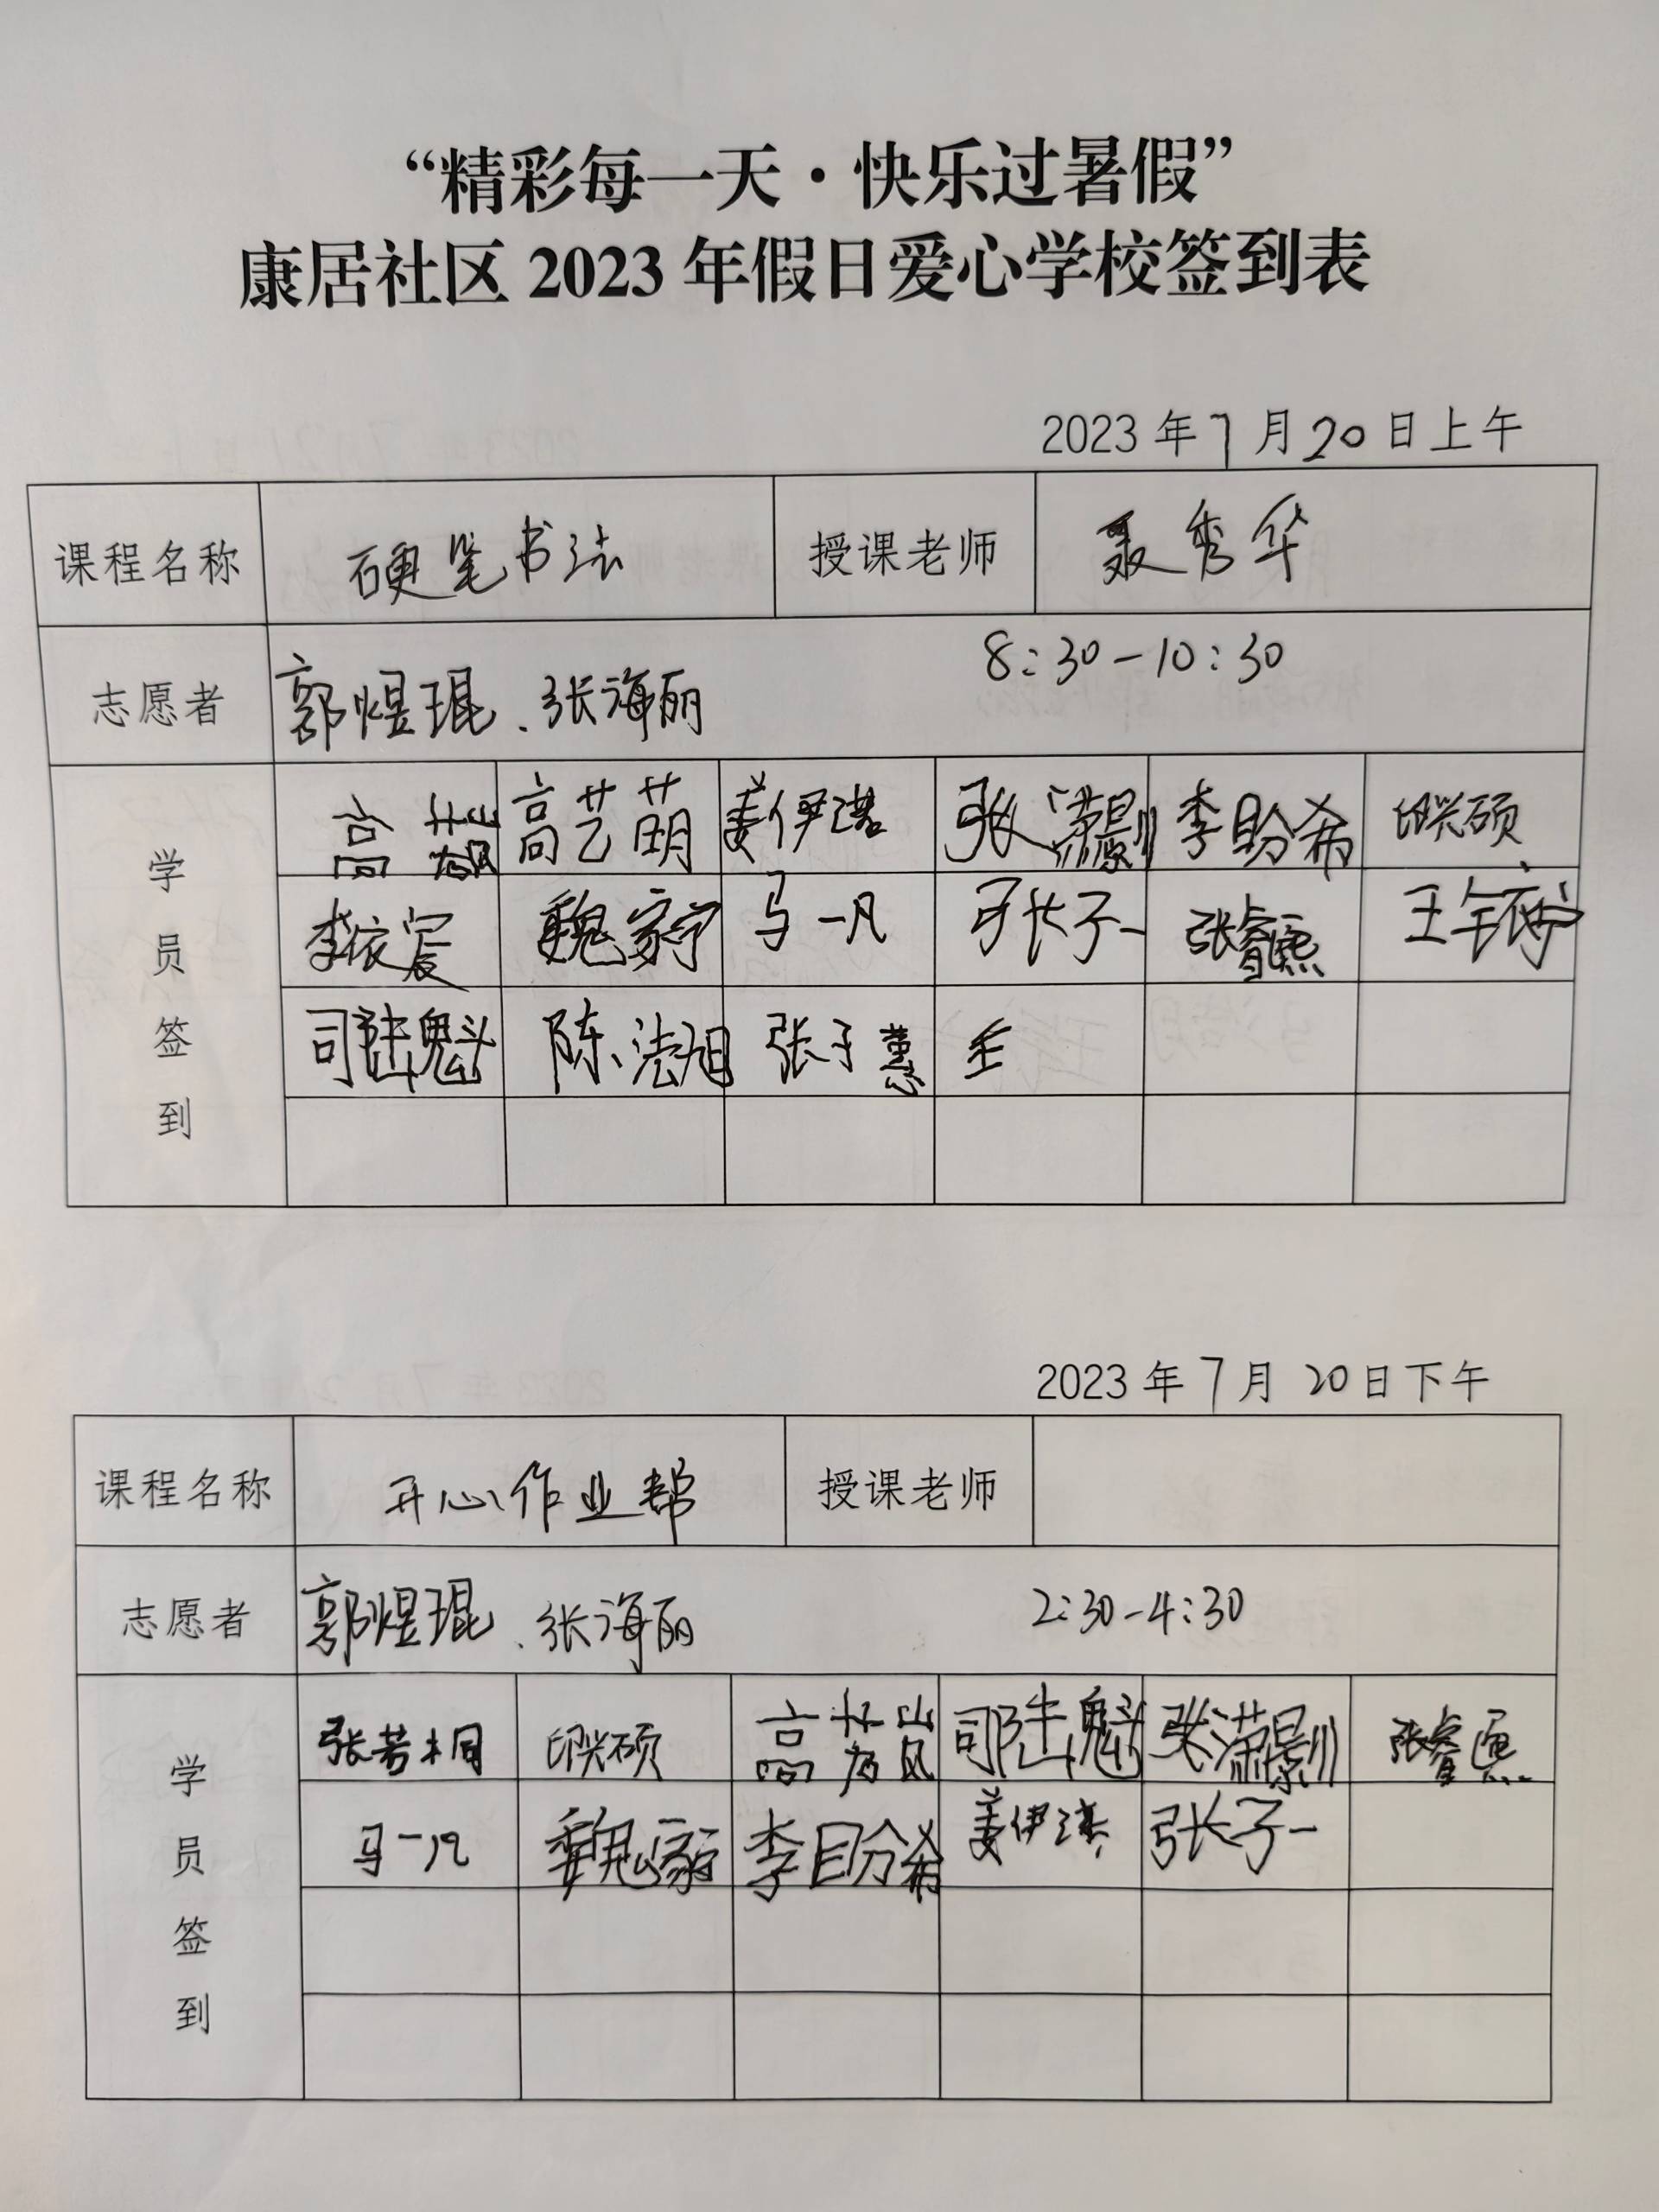 “精彩每一天·快乐过暑假”
康居社区 2023 年假日爱心学校签到表
2023 年 7 月 20 日上午
课程名称 硬笔书法 授课老师 聂秀华
志愿者 郭煜琨、张海丽 8:30-10:30
学员签到
高 高艺萌 姜伊诺 张潇 李盼希 印兴硕
李依宸 魏家宁 马一凡 张子一 张睿熙 王
司陆魁 陈法旭 张子慧
2023 年 7 月 20 日下午
课程名称 开心作业帮 授课老师
志愿者 郭煜琨、张海丽 2:30-4:30
学员签到
张若桐 印兴硕 高 司陆魁 张潇 张睿
马一凡 魏家 李盼希 姜伊 张子一